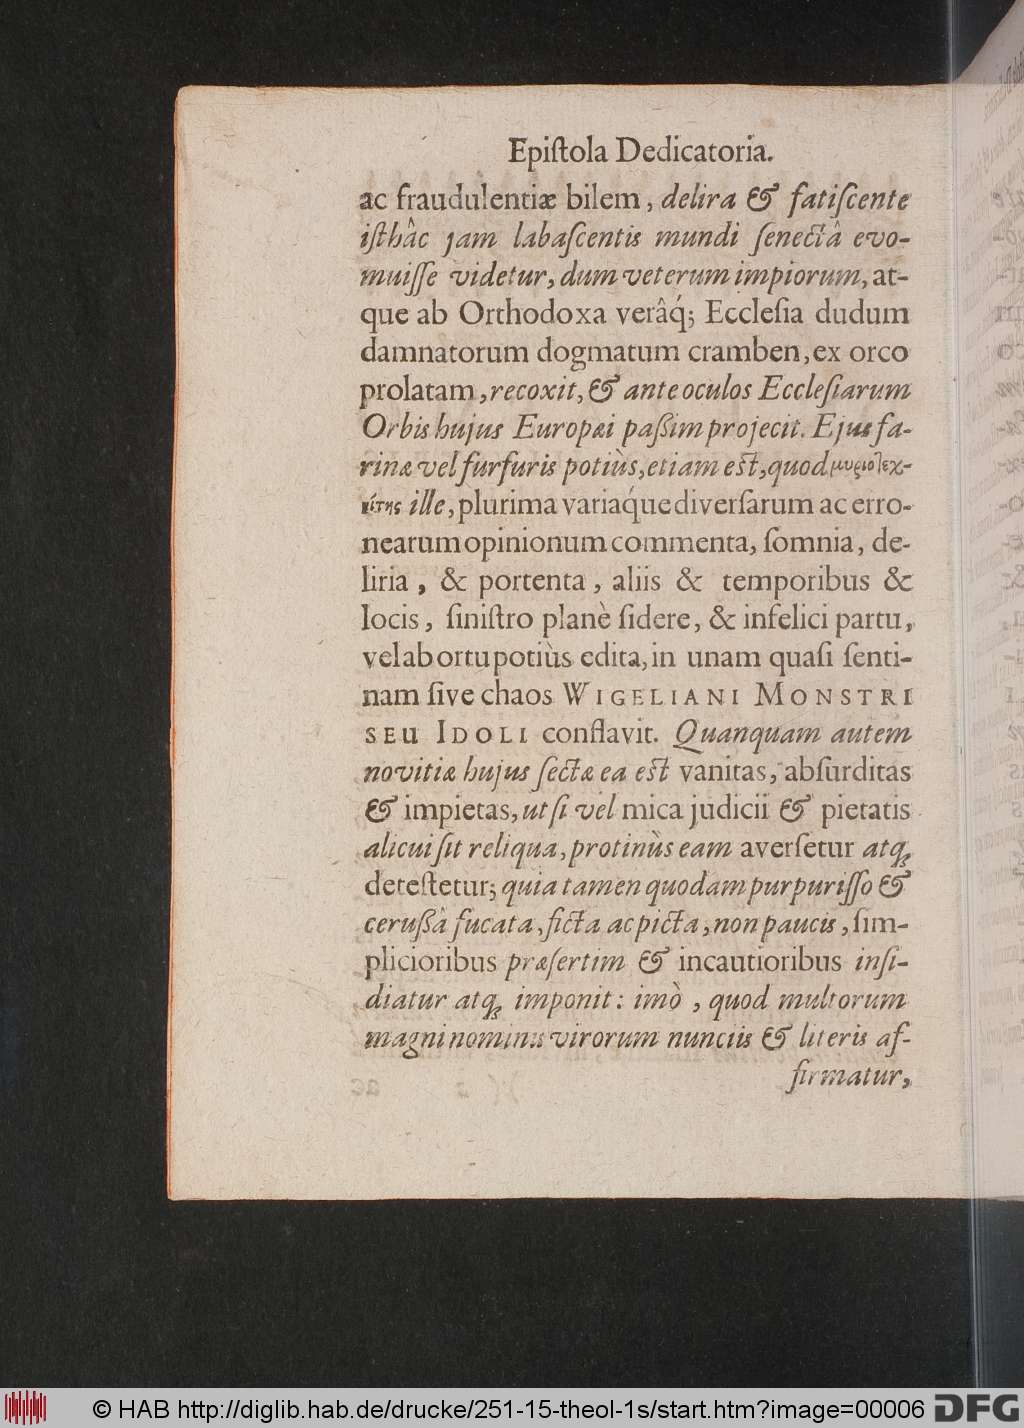 Epiſtola Dedicatoria.
ac fraudulentiæ bilem, delira & fatiſcente
iſthâc jam labaſcentis mundi ſenectâ evo-
muiſſe videtur, dum veterum impiorum, at-
que ab Orthodoxa verâq́; Eccleſia dudum
damnatorum dogmatum cramben, ex orco
prolatam, recoxit, & ante oculos Eccleſiarum
Orbis hujus Europæi paßim projecit. Ejus fa-
rinæ vel furfuris potiùs, etiam est, quod μυριοτεχ-
νίτης ille, plurima variáque diverſarum ac erro-
nearum opinionum commenta, ſomnia, de-
liria, & portenta, aliis & temporibus &
locis, ſiniſtro planè ſidere, & infelici partu,
vel abortu potiùs edita, in unam quaſi ſenti-
nam ſive chaos WIGELIANI MONSTRI
SEU IDOLI conflavit. Quanquam autem
novitiæ hujus ſectæ ea est vanitas, abſurditas
& impietas, ut ſi vel mica judicii & pietatis
alicui ſit reliqua, protinùs eam averſetur atq;
deteſtetur; quia tamen quodam purpuriſſo &
cerußâ fucata, ficta ac picta, non paucis, ſim-
plicioribus præſertim & incautioribus inſi-
diatur atq; imponit: imò, quod multorum
magni nominis virorum nunciis & literis af-
firmatur,
© HAB http://diglib.hab.de/drucke/251-15-theol-1s/start.htm?image=00006
DFG